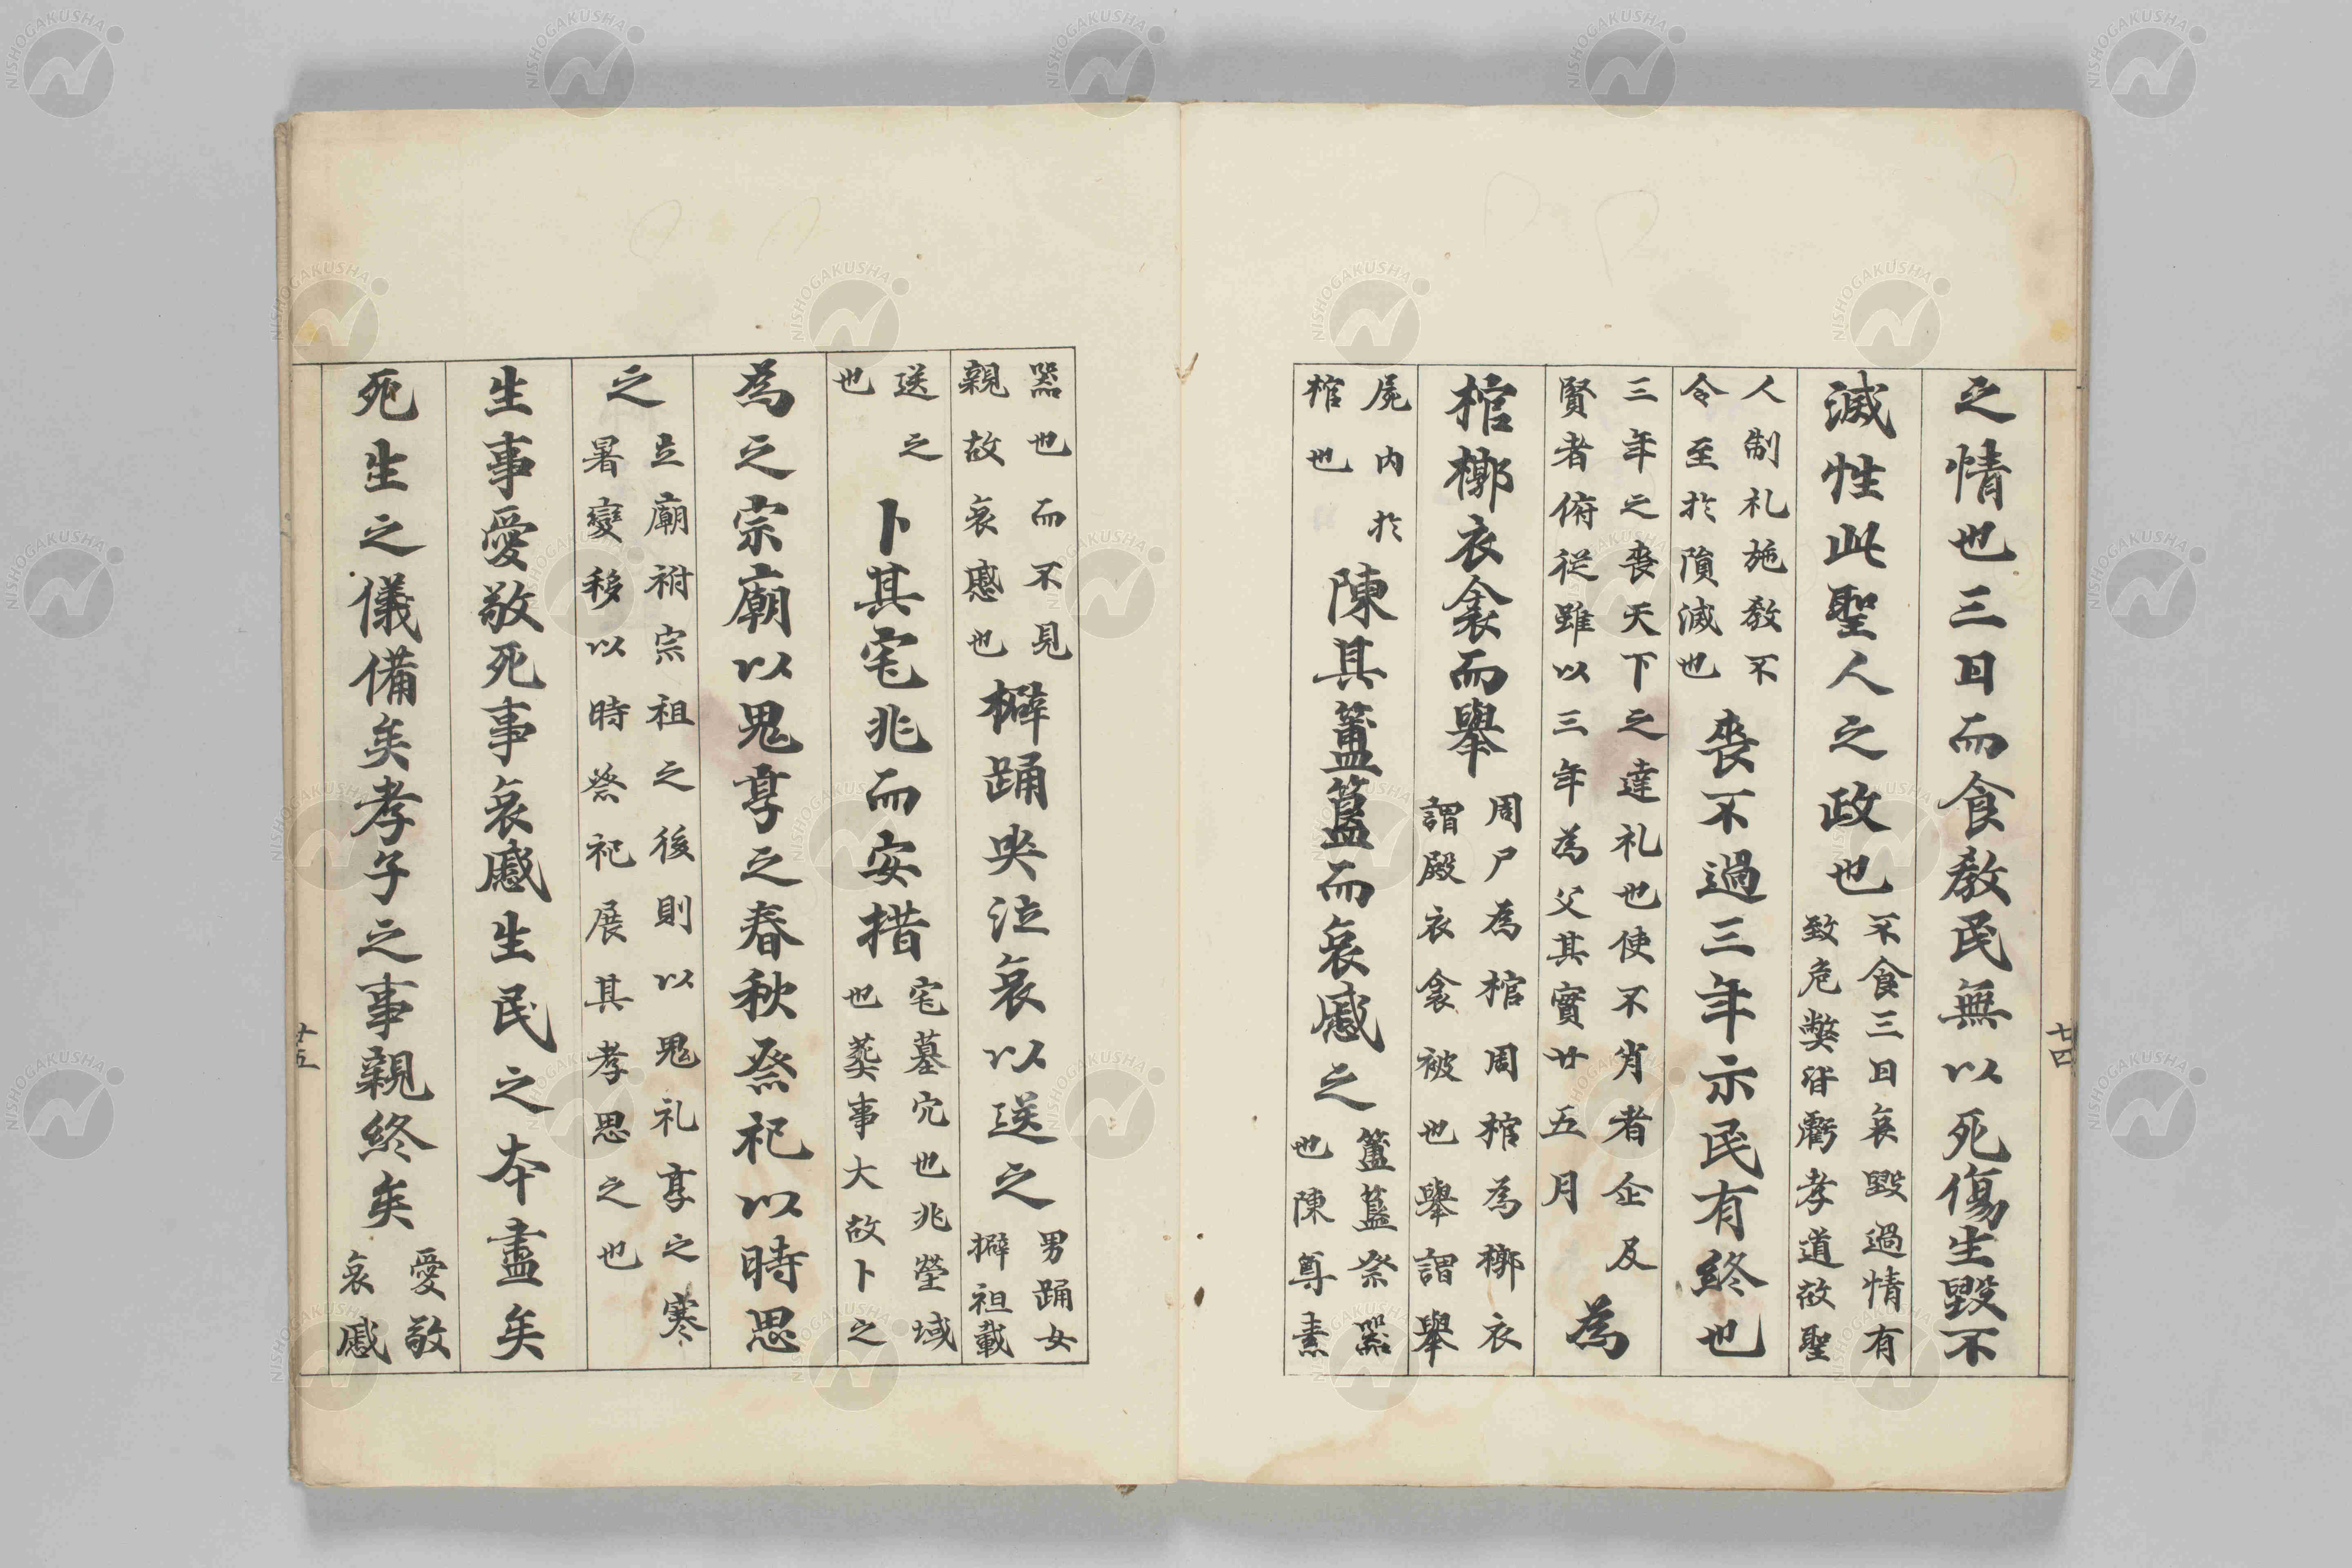 之情也三日而食教民無以死傷生毀不
滅性此聖人之政也
不食三日哀毀過情有
致危弊皆虧孝道故聖
人制礼施教不
令至於隕滅也
喪不過三年示民有終也
三年之喪天下之達礼也使不肖者企及
賢者俯從雖以三年為父其實廿五月
為
棺槨衣衾而舉
周尸為棺周棺為槨衣
謂殿衣衾被也舉謂舉
屍内於
棺也
陳其簠簋而哀慼之
簠簋祭器
也陳尊素
廿四
器也而不見
親故哀慼也
擗踊哭泣哀以送之
男踊女
擗祖載
送之
也
卜其宅兆而安措
宅墓穴也兆塋域
也葬事大故卜之
為之宗廟以鬼享之春秋祭祀以時思
之
立廟祔宗祖之後則以鬼礼享之寒
暑變移以時祭祀展其孝思之也
生事愛敬死事哀慼生民之本盡矣
死生之儀備矣孝子之事親終矣
愛敬
哀慼
廿五
NISHOGAKUSHA